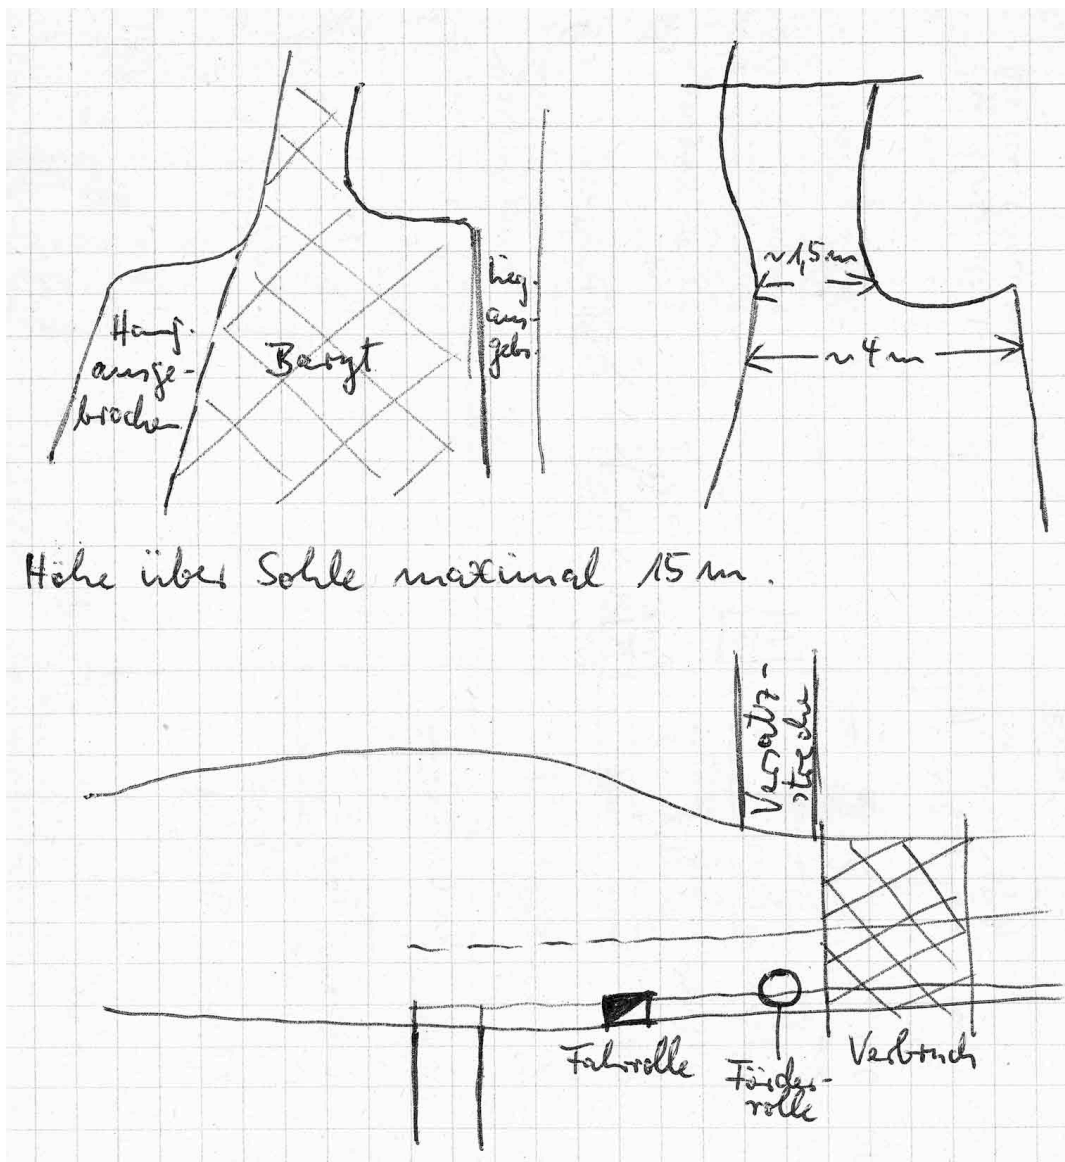 Hang.
ausge-
brochen
Baryt
Lieg.
aus-
gebr.
~1,5m
~4m
Höhe über Sohle maximal 15m.
Versatz-
strecke
Fahrrolle
Förder-
rolle
Verbruch